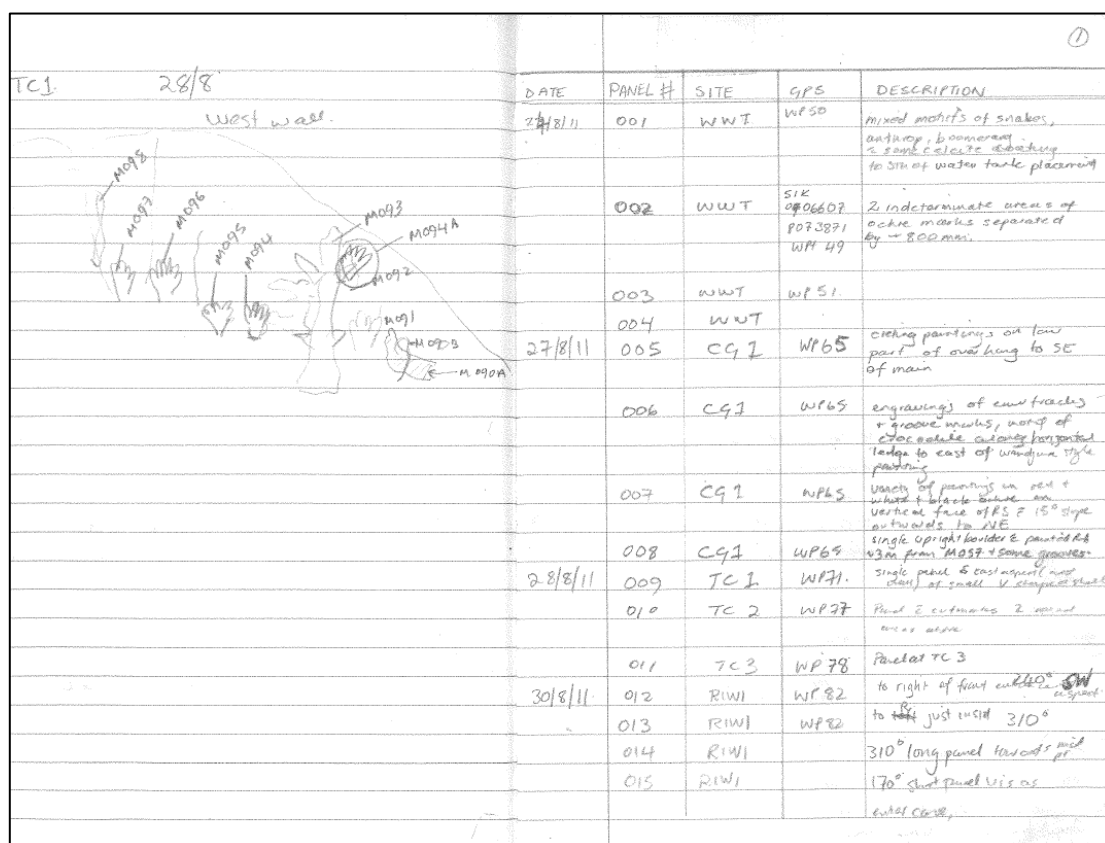 TC1. 28/8
West wall.
M098
M097
M096
M095
M094
M093
M094A
M092
M091
M090B
M090A
1
DATE PANEL # SITE GPS DESCRIPTION
/8/11 001 WWT WP50 mixed motifs of snakes,
anthrop, boomerang
some calcite
to sth of water tank placement
002 WWT 51K 2 indeterminate areas of
0706607 ochre marks separated
8073871 by ~ 800mm.
WPt 49
003 WWT WP51.
004 WWT
27/8/11 005 CG1 WP65 ceiling paintings on low
part of overhang to SE
of main
006 CG1 WP65 engravings of emu tracks
+ groove marks, north of
crocodile along horizontal
ledge to east of wandjina style
painting
007 CG1 WP65 variety of paintings in red +
white + black ochre on
vertical face of RS c̄ 15° slope
outwards to NE
008 CG1 WP65 single upright boulder c̄ painted RA
~3m from M057 + some grooves.
28/8/11 009 TC1 WP71. single panel c̄ east aspect
of small V shaped
010 TC2 WP77 Panel c̄ 2
areas above
011 TC3 WP78 Panel at TC3
30/8/11. 012 RIWI WP82 to right of front 240° SW
aspect.
013 RIWI WP82 to R just insid 310°
014 RIWI 310° long panel towards mid
pt
015 RIWI 170° short panel vis as
enter cave,